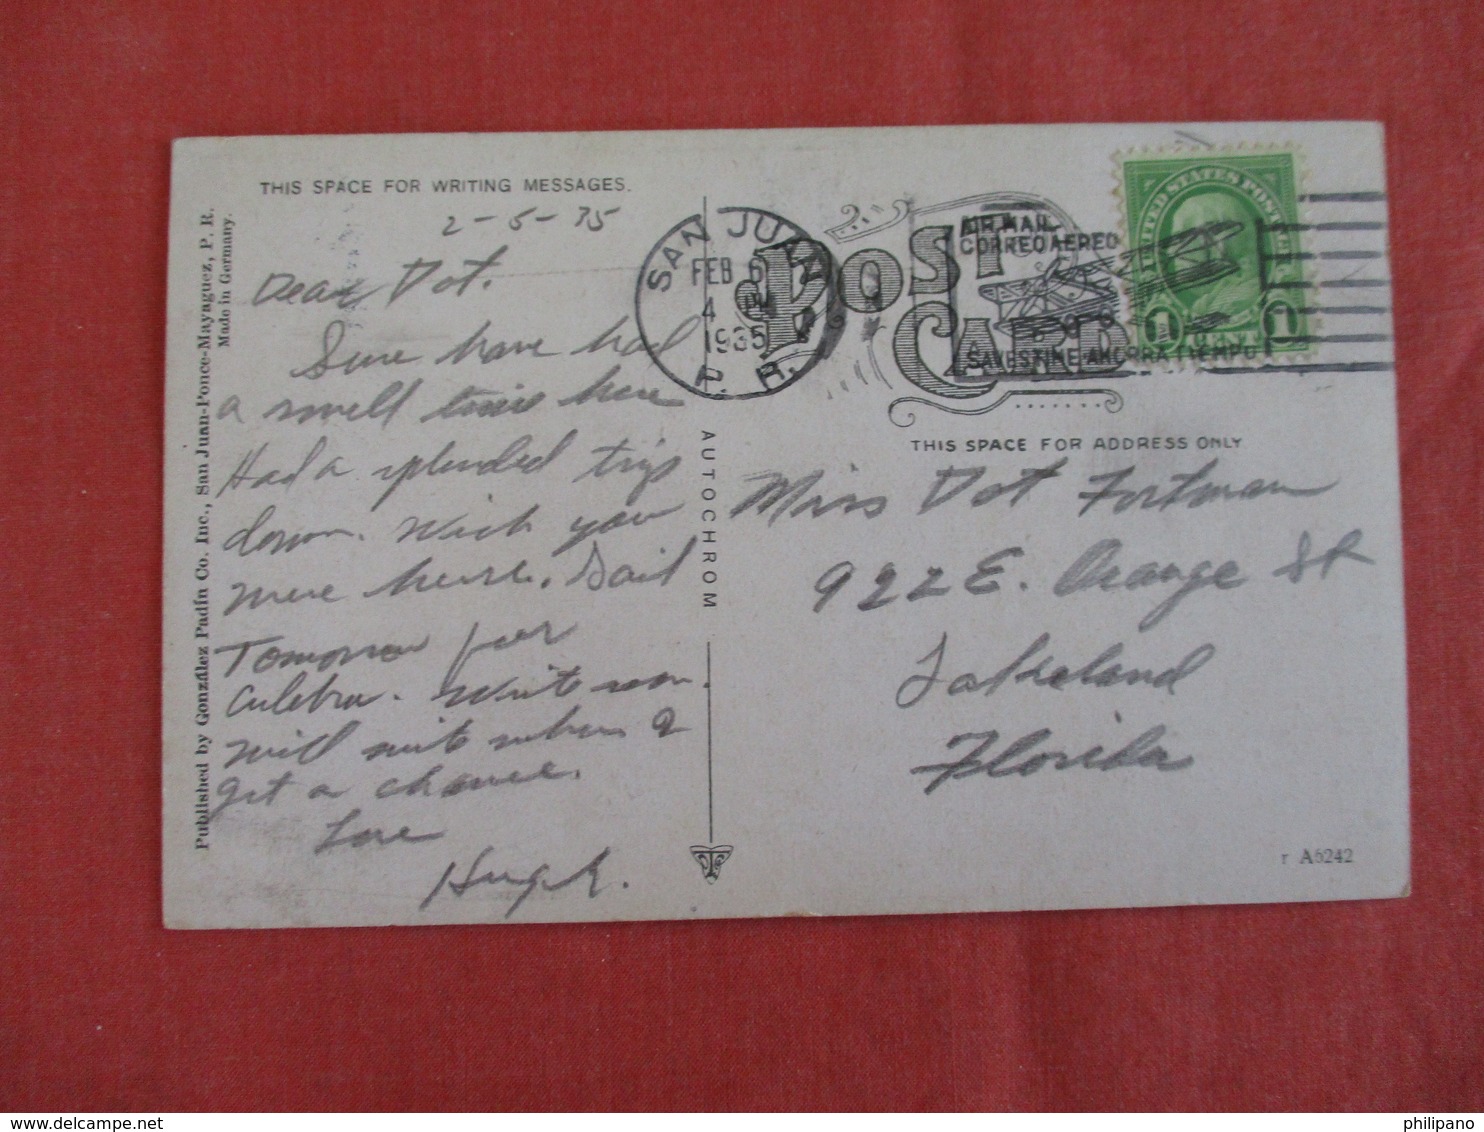 THIS SPACE FOR WRITING MESSAGES.
2-5-35
Dear Dot.
Sure have had
a swell time here
Had a splendid trip
down. Wish you
were here. Sail
Tomorrow for
Culebra. Write soon.
will write when I
get a chance.
Love
Hugh.
Published by González Padín Co. Inc., San Juan-Ponce-Mayaguez, P. R.
Made in Germany.
AUTOCHROM
SAN JUAN
FEB 5
4 PM
1935
P. R.
POST CARD
AIR MAIL
CORREO AEREO
SAVES TIME AHORRA TIEMPO
UNITED STATES POSTAGE
1 1
THIS SPACE FOR ADDRESS ONLY
Miss Dot Fortman
922 E. Orange St
Lakeland
Florida
r A6242
philipano